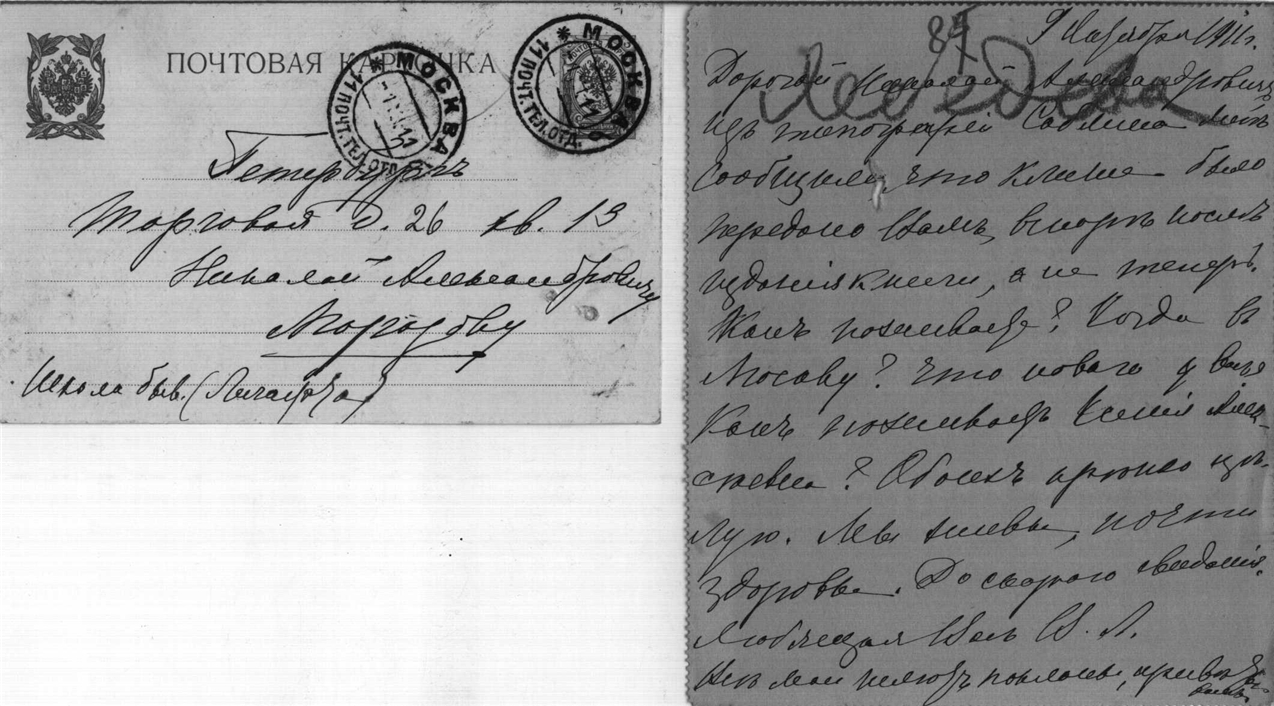 ПОЧТОВАЯ КАРТОЧКА
* МОСКВА *
11 ПОЧТ. ТЕЛ. ОТД.
* МОСКВА *
11 ПОЧТ. ТЕЛ. ОТД.
Петербургъ
Торговая д. 26 кв. 13
Николай Александровичу
Морозову
Школа быв. (Лесгафта)
84
Лебедева
9 1911 г.
Дорогой Николай Александровичъ
изъ типографіи Саблина мнѣ
сообщили, что клише было
передано Вамъ, вскорѣ послѣ
изданія книги, а не теперь.
Какъ поживаете? Когда въ
Москву? Что новаго у Васъ
Какъ поживаетъ Ксенія Алек-
сѣевна? Обоихъ крѣпко цѣ-
лую. Мы живы, почти
здоровы. До скораго свиданія.
Любящая Васъ В. Л.
мои шлютъ поклоны,